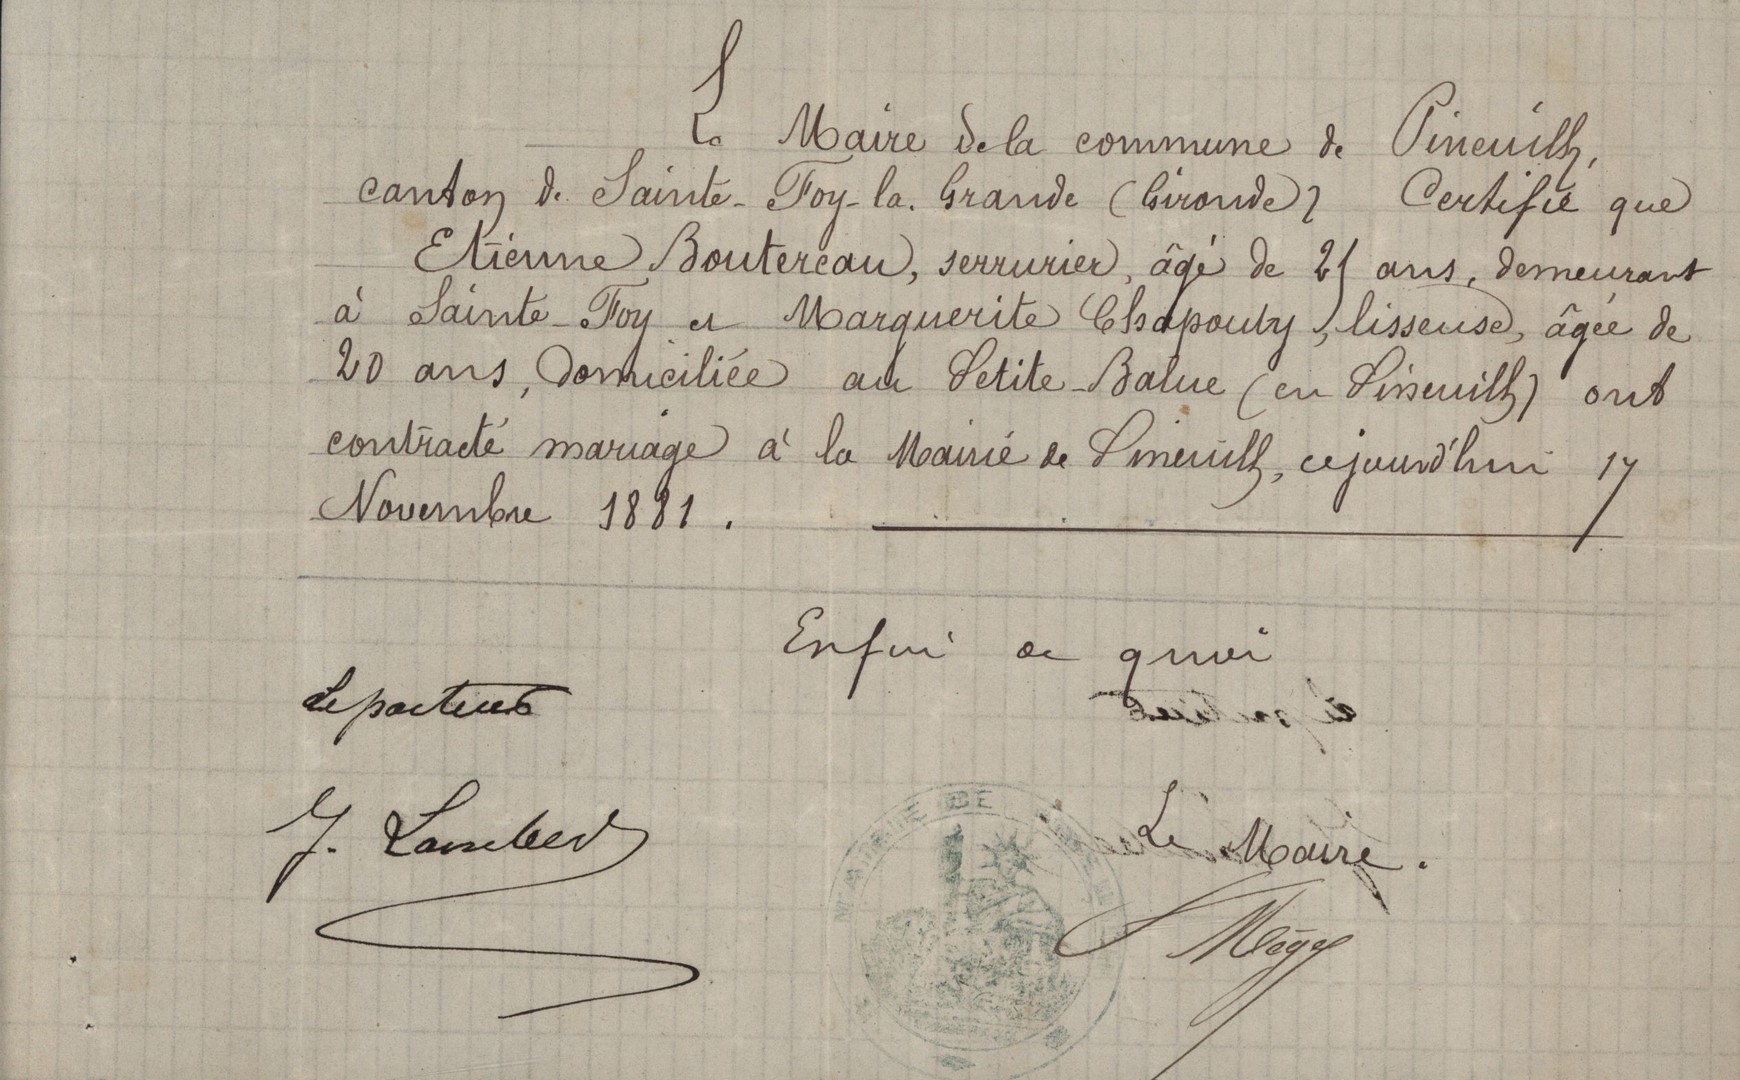 Le Maire de la commune de Pineuilh,
canton de Sainte-Foy-la-Grande (Gironde) Certifie que
Etienne Boutereau, serrurier, âgé de 21 ans, demeurant
à Sainte-Foy et Marguerite Chapouly, lisseuse, âgée de
20 ans, domiciliée au Petite-Balue (en Pineuilh) ont
contracté mariage à la Mairie de Pineuilh, cejourd'hui 17
Novembre 1881.
En foi de quoi
Le pasteur
J. Lambert
Le Maire.
MAIRIE DE